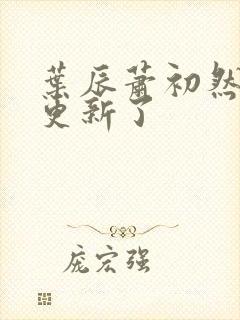 葉辰蕭初然
更新了
庞宏强